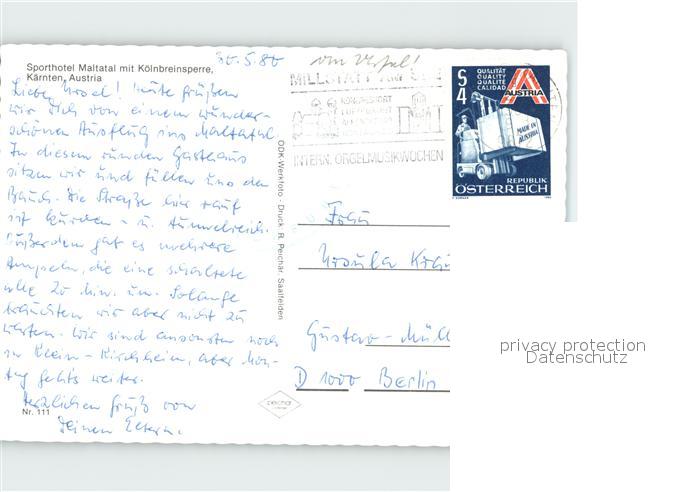 30.5.80
Sporthotel Maltatal mit Kölnbreinsperre,
Kärnten, Austria
Liebe Ursel! Heute grüßen
wir Dich von einem wunder-
schönen Ausflug ins Maltatal.
In diesem runden Gasthaus
sitzen wir und füllen uns den
Bauch. Die Straße hier rauf
ist kurven- u. tunnelreich.
Außerdem gab es mehrere
Ampeln, die eine schaltete
alle 20 Min. um. Solange
brauchten wir aber nicht zu
warten. Wir sind ansonsten noch
in Klein-Kirchheim, aber Mon-
tag gehts weiter.
Herzlichen Gruß von
Deinen Eltern.
Nr. 111
ODK-Werkfoto - Druck: R. Peichär, Saalfelden
peichär
MILLSTATT AM
INTERN. ORGELMUSIKWOCHEN
S 4
QUALITÄT
QUALITY
QUALITÉ
CALIDAD
AUSTRIA
MADE IN AUSTRIA
REPUBLIK
ÖSTERREICH
Frau
Ursula
Gustav-Müll
D 1000 Berlin
privacy protection
Datenschutz